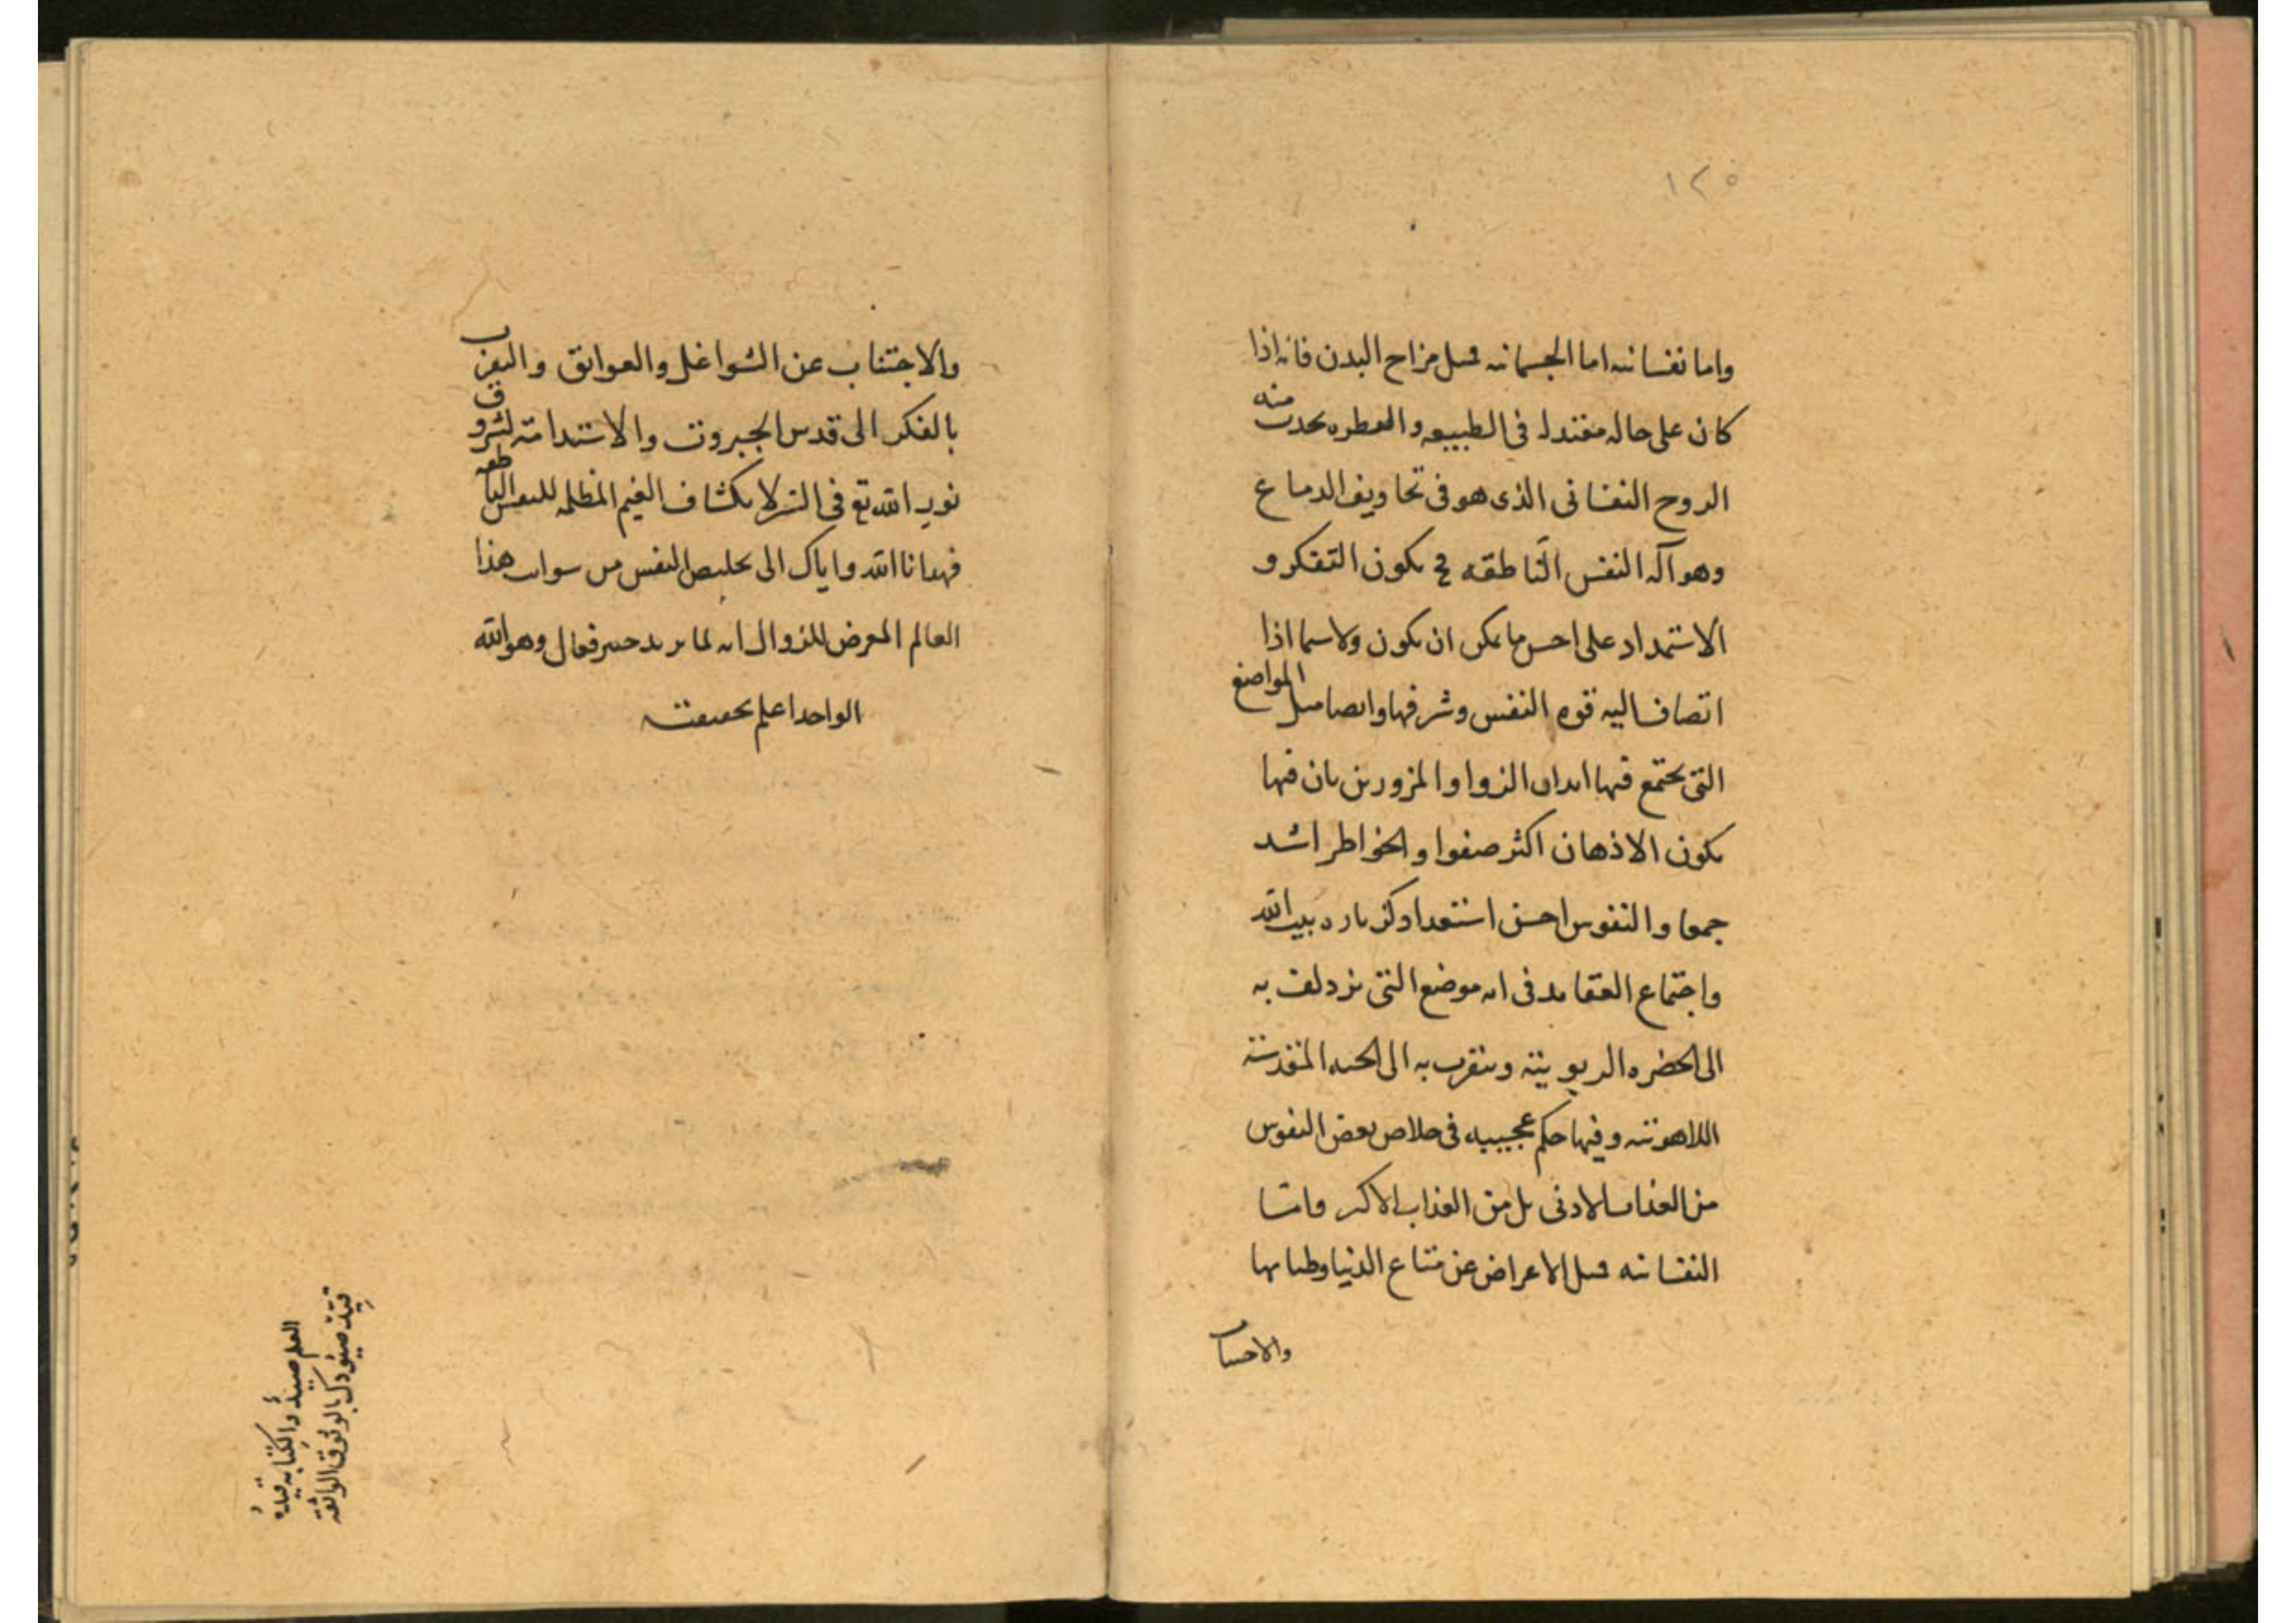 ١٢٥
واما نفسانيه اما الجسمانيه مثل مزاج البدن فانه اذا
كان على حاله معتدله فى الطبيعه والفطره يحدث منه
الروح النفسانى الذى هو فى تجاويف الدماغ
وهو آله النفس الناطقه فح يكون التفكر و
الاستمداد على احسن ما يمكن ان يكون ولا سيما اذا
اتضاف اليه قوه النفس وشرفها وايضا مثل المواضع
التى يجتمع فيها ابدان الزوار والمزورين بان فيها
يكون الاذهان اكثر صفوا والخواطر اشد
جمعا والنفوس احسن استعدادا كزياره بيت الله
واجتماع العقايد فى انه موضع التى يزدلف به
الى الحضره الربوبيته ويتقرب به الى الجنبه المقدسته
اللاهوتيه وفيها حكم عجيبه فى خلاص بعض النفوس
من العذاب الادنى بل من العذاب الاكبر واما
النفسانيه مثل الاعراض عن متاع الدنيا وطيباتها
والاجتناب
والاجتناب عن الشواغل والعوايق والتقرب
بالفكر الى قدس الجبروت والاستدامته لشروق
نور الله تع فى السر لانكشاف الغيم المظلمه للنفس الناطقه
فهدانا الله واياك الى تخليص النفس من شوايب هذا
العالم المعرض للزوال انه لما يريد خبير فعال وهو الله
الواحد اعلم بحقيقته
العلم صيدٌ والكتابه قيدهُ
قيّد صيودك بالوثوق الواثقه